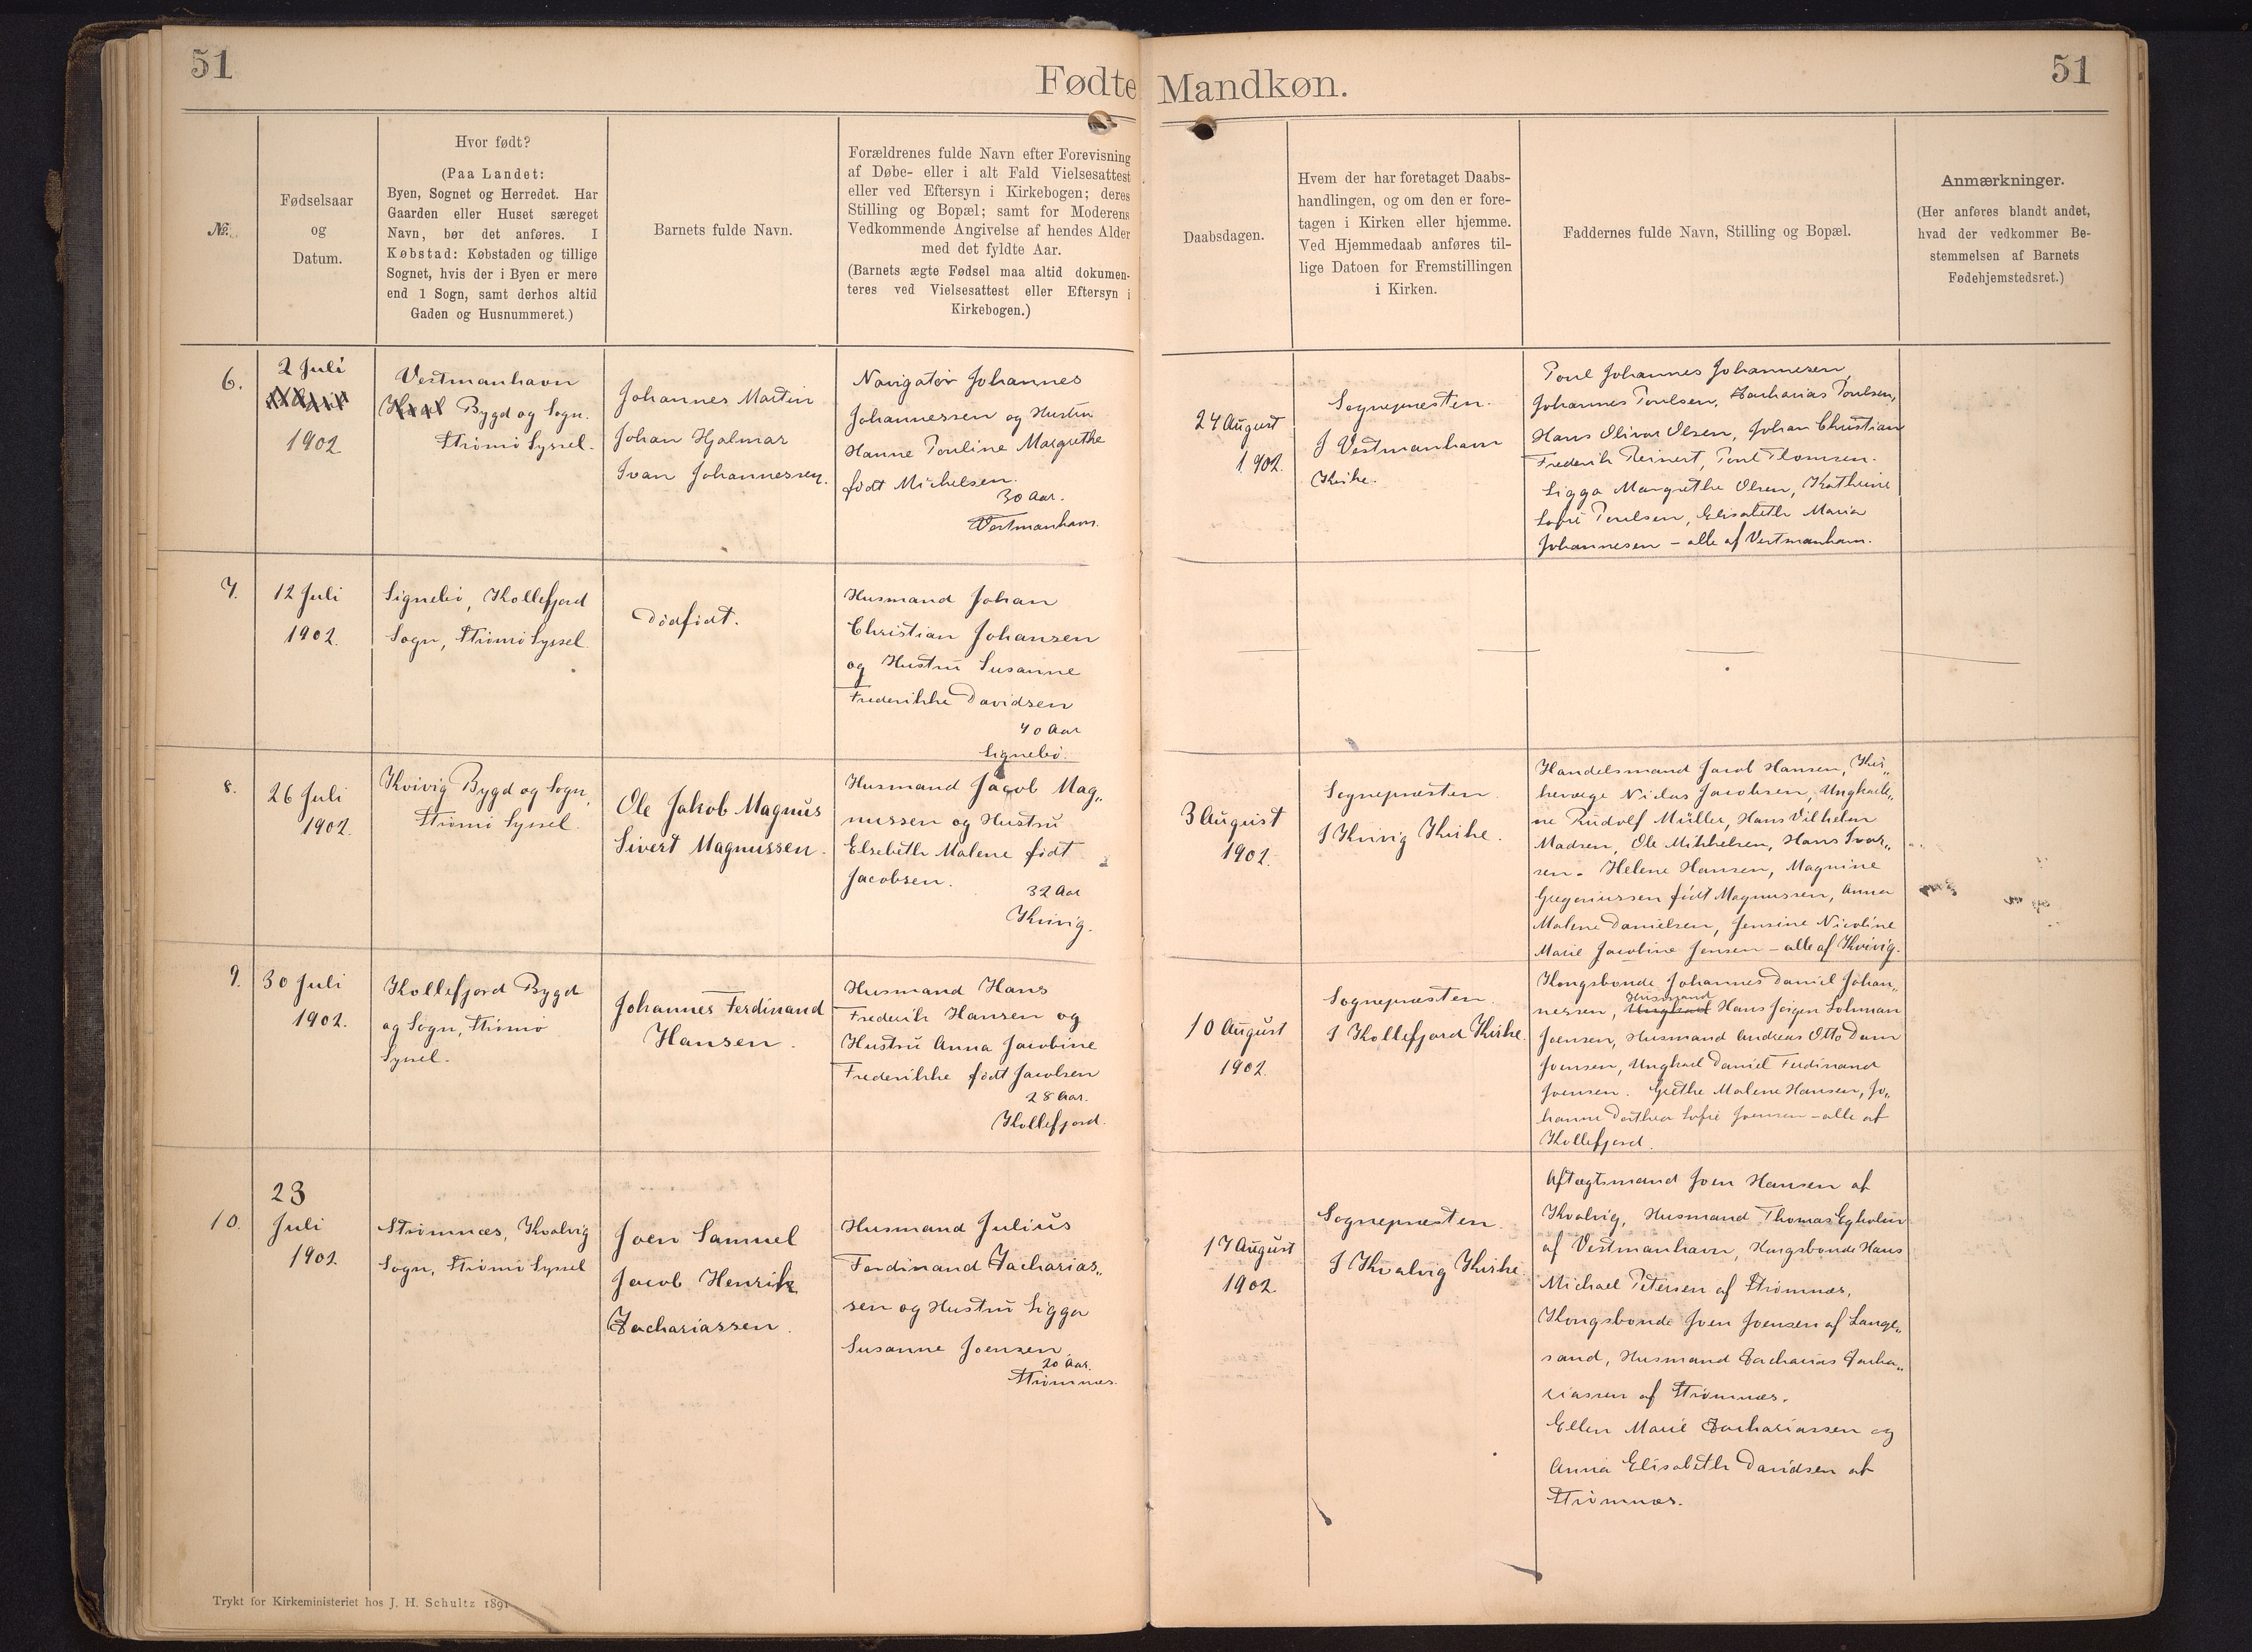 51
Fødte
Mandkøn.
51
№.
Fødselsaar
og
Datum.
Hvor født?
(Paa Landet:
Byen, Sognet og Herredet. Har
Gaarden eller Huset særeget
Navn, bør det anføres. I
Købstad: Købstaden og tillige
Sognet, hvis der i Byen er mere
end 1 Sogn, samt derhos altid
Gaden og Husnummeret.)
Barnets fulde Navn.
Forældrenes fulde Navn efter Forevisning
af Døbe- eller i alt Fald Vielsesattest
eller ved Eftersyn i Kirkebogen; deres
Stilling og Bopæl; samt for Moderens
Vedkommende Angivelse af hendes Alder
med det fyldte Aar.
(Barnets ægte Fødsel maa altid dokumen-
teres ved Vielsesattest eller Eftersyn i
Kirkebogen.)
Daabsdagen.
Hvem der har foretaget Daabs-
handlingen, og om den er fore-
tagen i Kirken eller hjemme.
Ved Hjemmedaab anføres til-
lige Datoen for Fremstillingen
i Kirken.
Faddernes fulde Navn, Stilling og Bopæl.
Anmærkninger.
(Her anføres blandt andet,
hvad der vedkommer Be-
stemmelsen af Barnets
Fødehjemstedsret.)
6.
2 Juli
1902.
Vestmanhavn
Bygd og Sogn.
Strømø Syssel.
Johannes Martin
Johan Hjalmar
Ivan Johannessen.
Navigatør Johannes
Johannessen og Hustru
Hanne Pouline Margrethe
født Michelsen.
30 Aar.
Vestmanhavn.
24 August
1902.
Sognepræsten.
I Vestmanhavn
Kirke.
Poul Johannes Johannesen,
Johannes Poulsen, Zacharias Poulsen,
Hans Olivar Olsen, Johan Christian
Frederik Reinert, Poul Thomsen.
Sigga Margrethe Olsen, Kathrine
Sofie Poulsen, Elisabeth Maria
Johannesen - alle af Vestmanhavn.
7.
12 Juli
1902.
Signebø, Kollefjord
Sogn, Strømø Syssel.
Dødfødt.
Husmand Johan
Christian Johansen
og Hustru Susanne
Frederikke Davidsen
40 Aar
Signebø.
8.
26 Juli
1902.
Kvivig Bygd og Sogn,
Strømø Syssel.
Ole Jakob Magnus
Sivert Magnussen.
Husmand Jacob Mag„
nussen og Hustru
Elsebeth Malene født
Jacobsen.
32 Aar
Kvivig.
3 August
1902.
Sognepræsten.
I Kvivig Kirke.
Handelsmand Jacob Hansen, Kir„
keværge Niclas Jacobsen, Ungkarle„
ne Rudolf Müller, Hans Vilhelm
Madsen, Ole Mikkelsen, Hans Ivar„
sen. Helene Hansen, Magnine
Gregoriussen født Magnussen, Anna
Malene Danielsen, Jensine Nicoline
Marie Jacobine Jensen - alle af Kvivig.
9.
30 Juli
1902.
Kollefjord Bygd
og Sogn, Strømø
Syssel.
Johannes Ferdinand
Hansen.
Husmand Hans
Frederik Hansen og
Hustru Anna Jacobine
Frederikke født Jacobsen
28 Aar.
Kollefjord.
10 August
1902.
Sognepræsten.
I Kollefjord Kirke.
Kongsbonde Johannes Daniel Johan„
Husmand
nessen, Ungkarl Hans Jørgen Sohnman
Joensen, Husmand Andreas Otto Dam
Joensen, Ungkarl Daniel Ferdinand
Joensen. Grethe Malene Hansen, Jo„
hanne Dorthea Sofie Joensen - alle af
Kollefjord.
10.
23
Juli
1902.
Strømnæs, Kvalvig
Sogn, Strømø Syssel
Joen Samuel
Jacob Henrik
Zachariassen.
Husmand Julius
Ferdinand Zacharias„
sen og Hustru Sigga
Susanne Joensen.
20 Aar.
Strømnæs.
17 August
1902.
Sognepræsten.
I Kvalvig Kirke.
Aftægtsmand Joen Hansen af
Kvalvig, Husmand Thomas Egholm
af Vestmanhavn, Kongsbonde Hans
Michael Petersen af Strømnæs,
Kongsbonde Joen Joensen af Lange„
sand, Husmand Zacharias Zacha„
riassen af Strømnæs.
Ellen Marie Zachariassen og
Anna Elisabeth Davidsen af
Strømnæs.
Trykt for Kirkeministeriet hos J. H. Schultz 1891